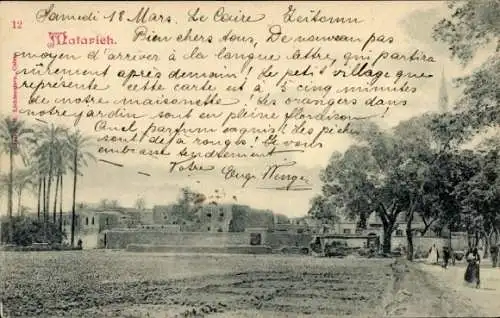 12
Matarieh.
Samedi 18 Mars. Le Caire Zeitoun
Bien chers tous, De nouveau pas
moyen d'arriver à la longue lettre, qui partira
sûrement après demain! Le petit village que
représente cette carte est à 5 cinq minutes
de notre maisonette! Les orangers dans
notre jardin sont en pleine floraison
Quel parfum exquis! les pêchers
sont déjà rouges! Je vous
embrasse tendrement
Votre